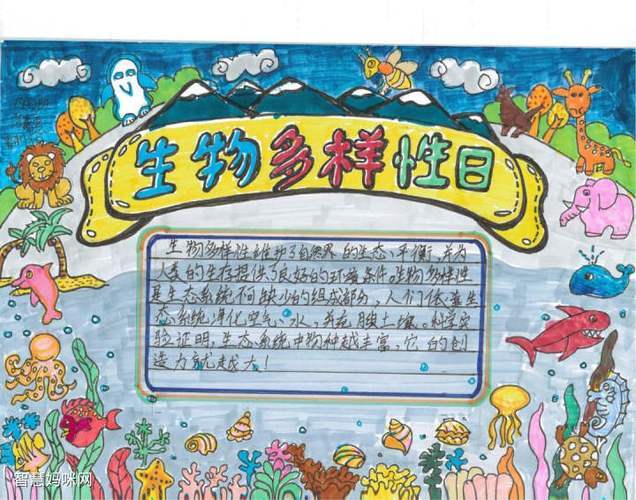 生物多样性日
生物多样性维护了自然界的生态平衡,并为
人类的生存提供了良好的环境条件。生物多样性
是生态系统不可缺少的组成部分,人们依靠生
态系统净化空气、水,并充腴土壤。科学实
验证明,生态系统中物种越丰富,它的创
造力就越大!
智慧妈咪网